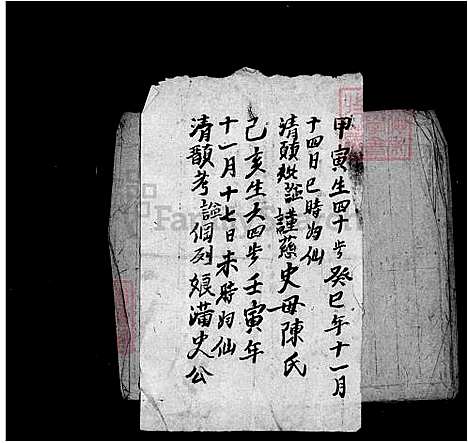 甲寅生四十歩癸巳年十一月
十四日巳時归仙
清頭妣謚謹慈史母陳氏
己亥生六四歩壬寅年
十一月十七日未時归仙
清顯考謚個列娘滿史公